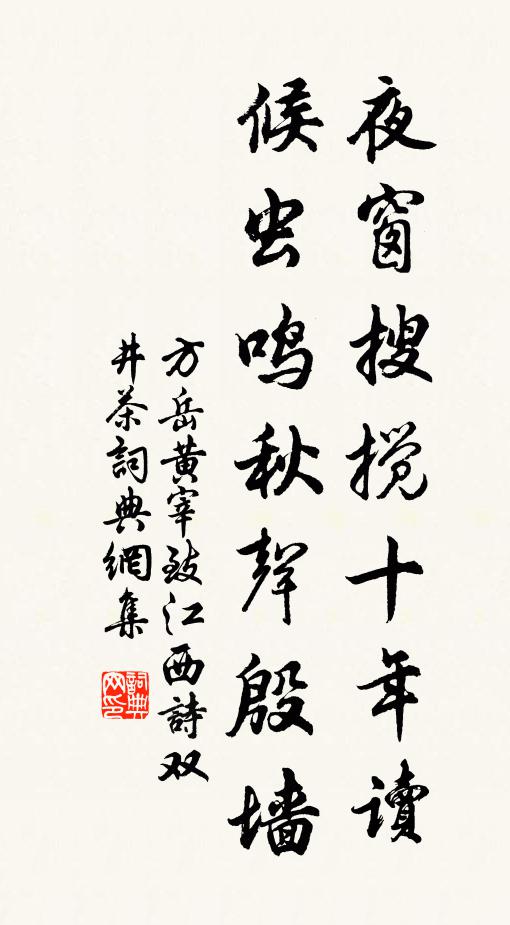 夜窗搜搅十年读
候虫鸣秋声殷墙
方岳黄宰致江西詩双
井茶詞典網集
詞典网印